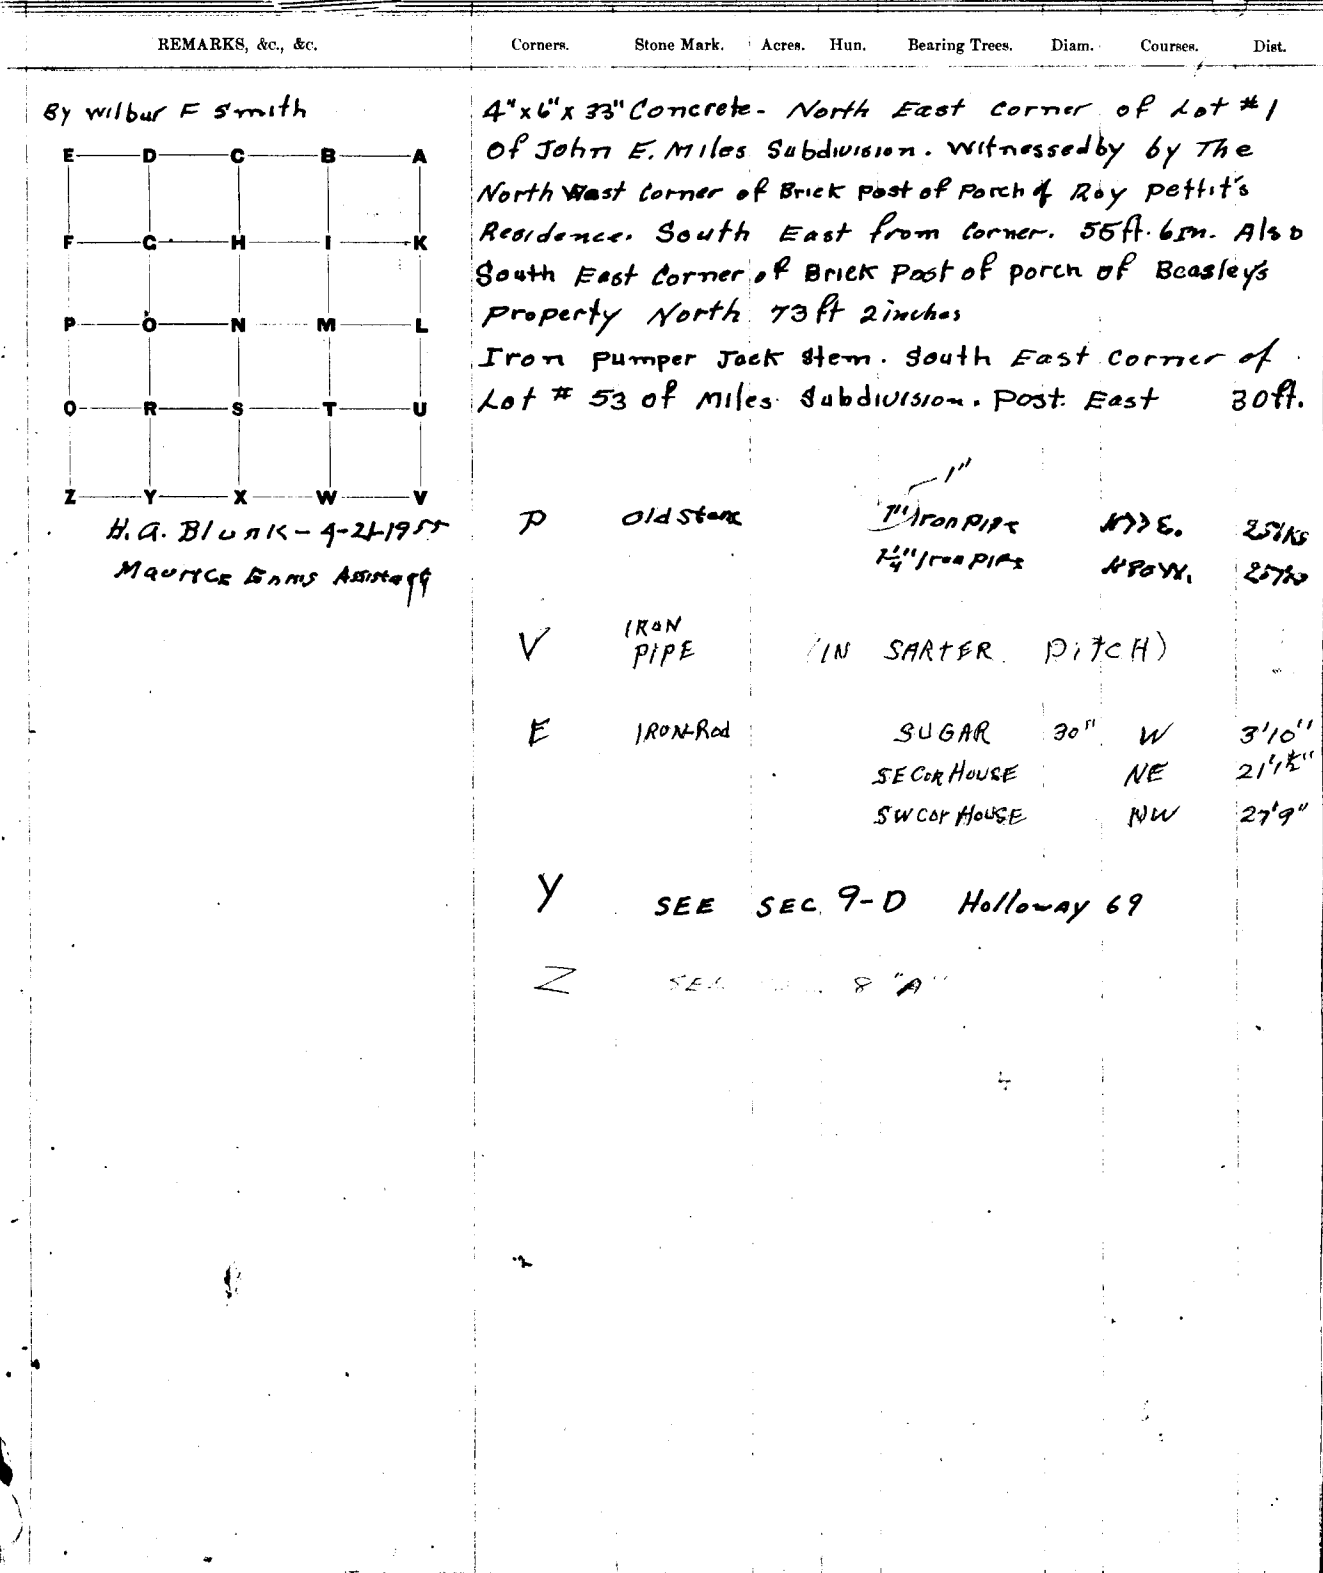 REMARKS, &c., &c. Corners. Stone Mark. Acres. Hun. Bearing Trees. Diam. Courses. Dist.
By Wilbur F Smith
E D C B A
F G H I K
P O N M L
Q R S T U
Z Y X W V
H. A. Blunk - 4-21-1955
Maurice Enms Assistant
4"x6"x 33" Concrete - North East Corner of Lot #1
Of John E. Miles Subdivision. Witnessed by by The
North West Corner of Brick Post of Porch of Roy Pettit's
Residence. South East from Corner. 55ft. 6In. Also
South East Corner of Brick Post of porch of Beasley's
Property North 73 ft 2 inches
Iron Pumper Jack Stem. South East Corner of
Lot # 53 of Miles Subdivision. Post East 30ft.
1"
P Old Stone 1" Iron Pipe N77E. 25lks
1¼" Iron Pipe N80W.
V IRON PIPE (IN SARTER DITCH)
E IRON Rod SUGAR 30" W 3'10"
SE Cor House NE 21'1½"
SW Cor House NW 27'9"
Y SEE SEC. 9-D Holloway 69
Z SEE 8 "A"